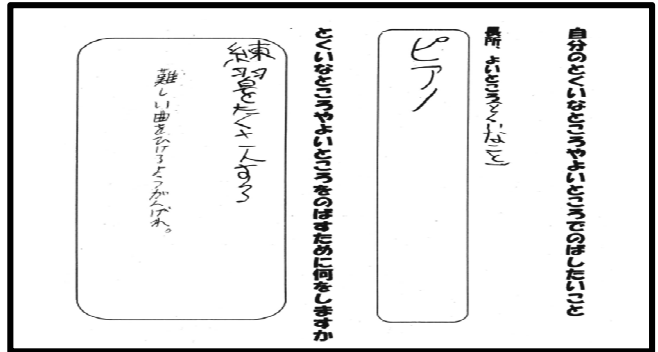 自分のとくいなところやよいところでのばしたいこと
長所、よいところ(とくいなこと)
ピアノ
とくいなところやよいところをのばすために何をしますか
練習をたくさんする
難しい曲をひけるようがんばれ。